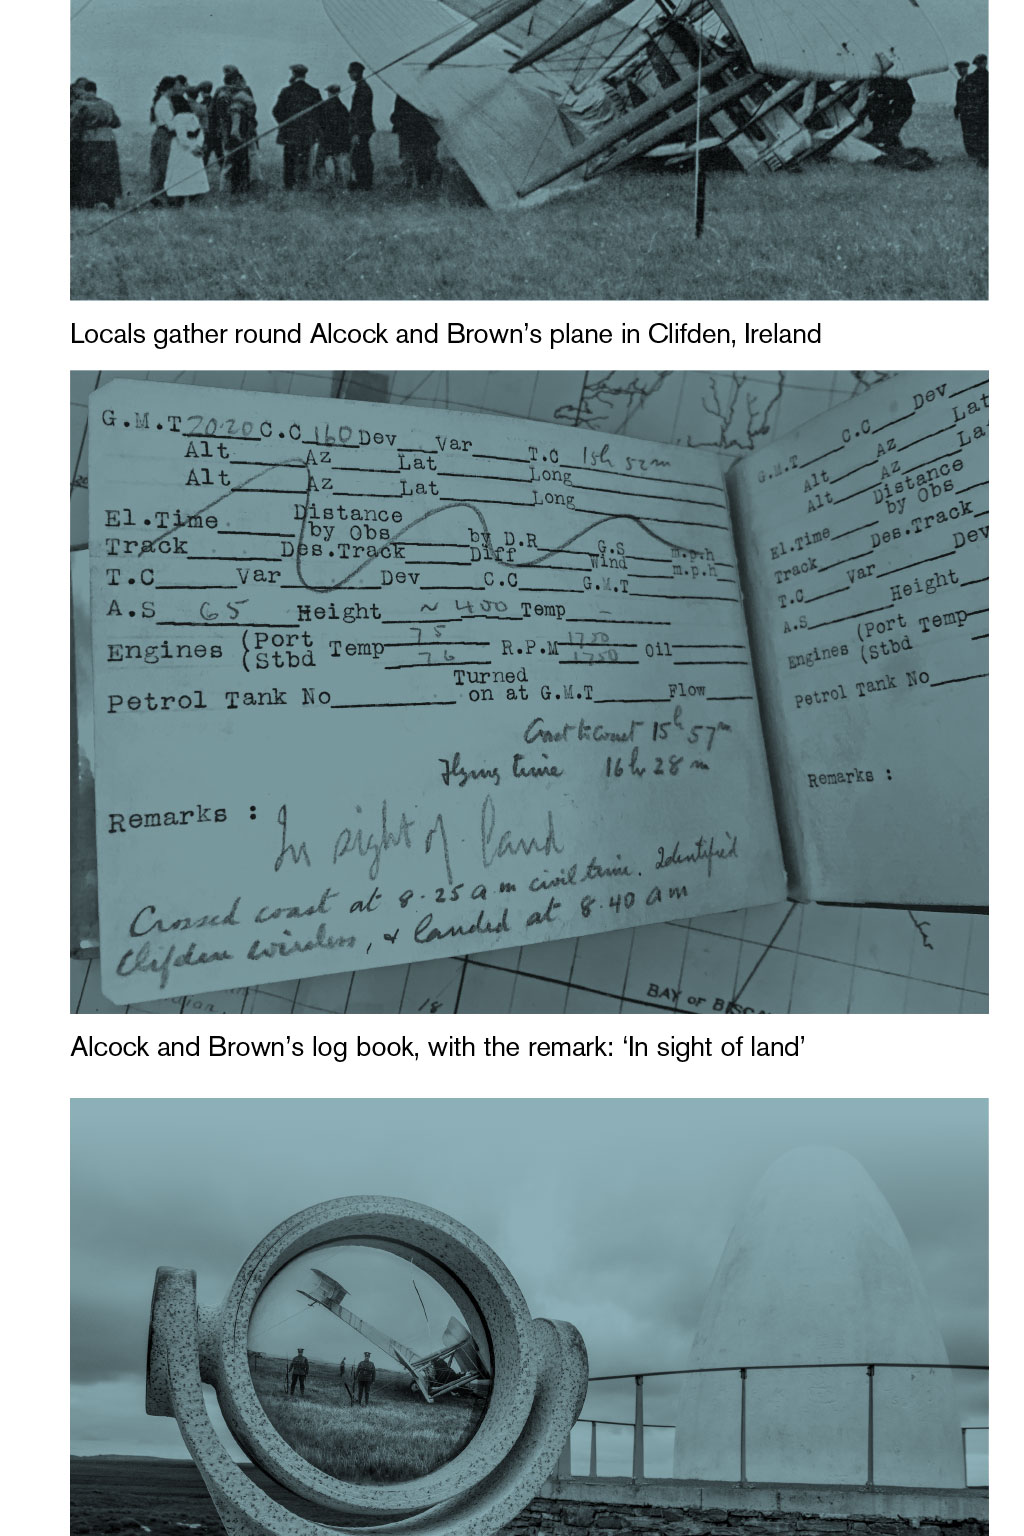 Locals gather round Alcock and Brown’s plane in Clifden, Ireland
G.M.T 20.20 C.C 160 Dev Var T.C 15h 52m
Alt Az Lat Long
Alt Az Lat Long
El.Time Distance by Obs by D.R G.S m.p.h
Track Des.Track Diff Wind m.p.h
T.C Var Dev C.C G.M.T
A.S 65 Height ~ 400 Temp -
Engines (Port Temp 75 R.P.M 1750 Oil
(Stbd 76 1750
Petrol Tank No Turned on at G.M.T Flow
Coast to coast 15h 57m
Flying time 16h 28m
Remarks : In sight of land
Crossed coast at 8.25 a m civil time. Identified
Clifden wireless, & landed at 8.40 am
G.M.T C.C Dev
Alt Az Lat
Alt Az La
El.Time Distance by Obs
Track Des.Track
T.C Var Dev
A.S Height
Engines (Port Temp
(Stbd
Petrol Tank No
Remarks :
18
BAY OF BISC
Alcock and Brown’s log book, with the remark: ‘In sight of land’